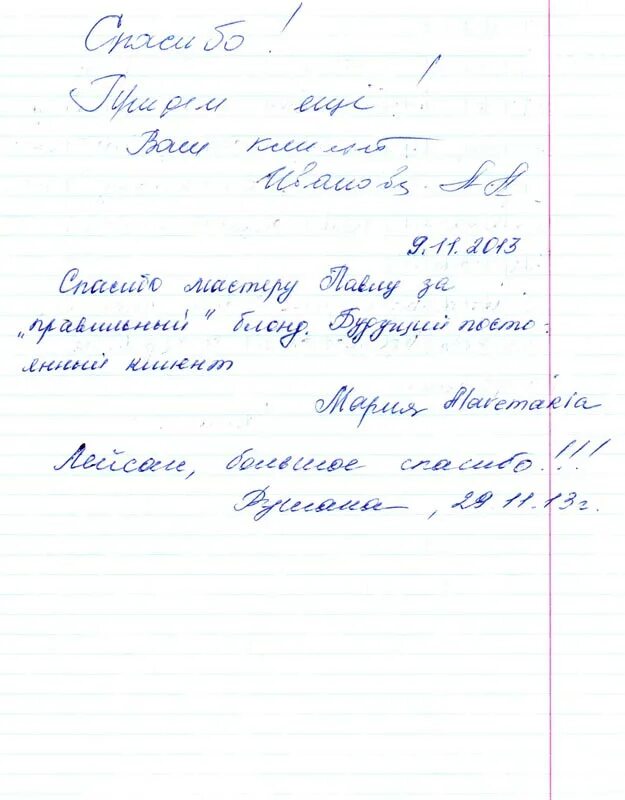 Спасибо!
Придем ещё!
Ваш клиент
Иванова
9.11.2013
Спасибо мастеру Павлу за
„правильный“ блонд. Будущий посто-
янный клиент
Мария
Лейсан, большое спасибо!!!
29.11.13г.